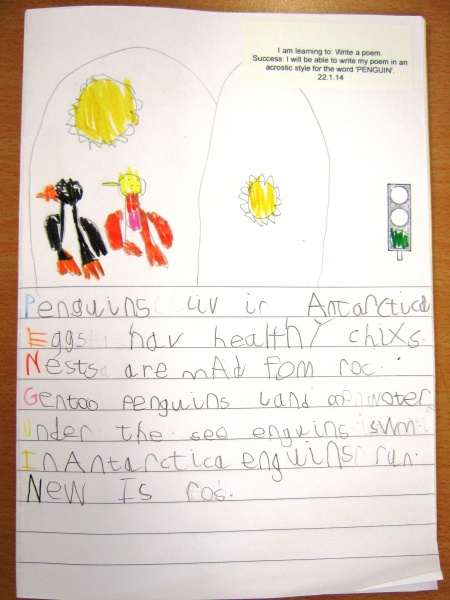 I am learning to: Write a poem.
Success: I will be able to write my poem in an
acrostic style for the word 'PENGUIN'.
22.1.14
Penguins liv in Antarctica
Eggs hav healthy chixs.
Nests are mAd fom roc.
Gentoo penguins land on woter
Under the see enguins swm
In Antarctica enguins run.
New Is ros.